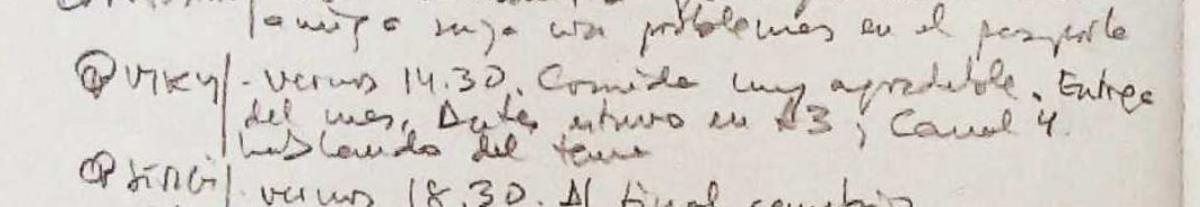 amiga suya con problemas en el pasaporte
VIKY/ - vernos 14.30. Comida muy agradable. Entrega
del mes. Antes estuvo en A3 y Canal 4
hablando del tema
vernos 18.30. Al final cambia